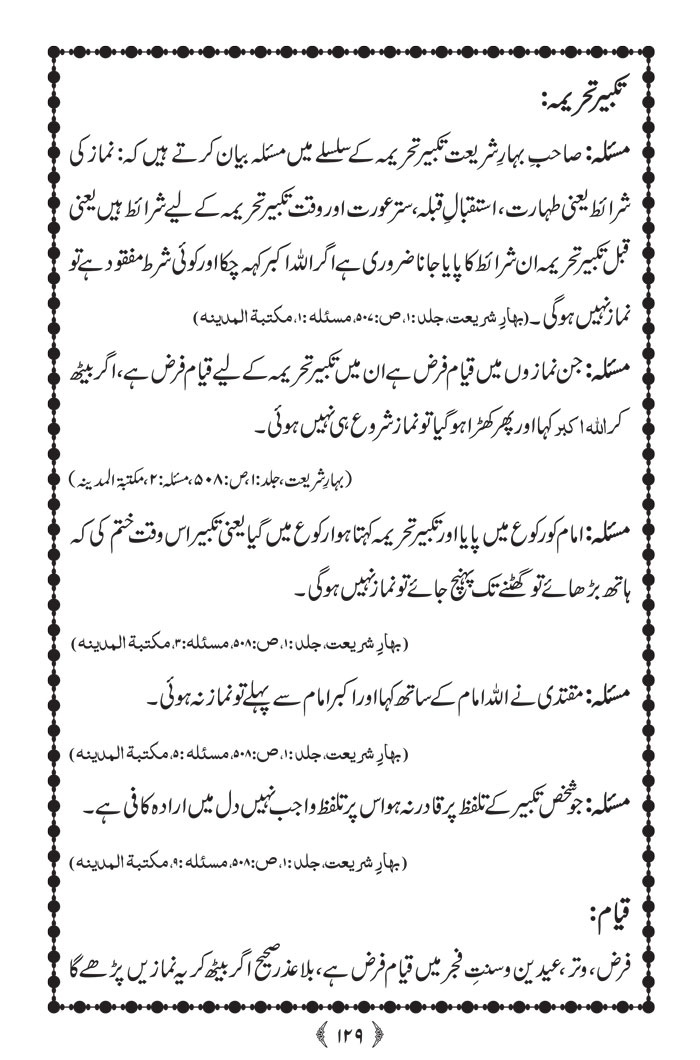 تکبیرتحریمہ:
مسئلہ: صاحبِ بہارِشریعت تکبیرتحریمہ کے سلسلے میں مسئلہ بیان کرتے ہیں کہ: نماز کی
شرائط یعنی طہارت، استقبالِ قبلہ، سترعورت اور وقت تکبیرتحریمہ کے لیے شرائط ہیں یعنی
قبل تکبیرتحریمہ ان شرائط کا پایا جانا ضروری ہے اگر اللہ اکبر کہہ چکا اور کوئی شرط مفقود ہے تو
نماز نہیں ہوگی۔ (بہارِ شریعت، جلد:۱، ص:۵۰۷، مسئلہ:۱، مکتبۃ المدینہ)
مسئلہ: جن نمازوں میں قیام فرض ہے ان میں تکبیرتحریمہ کے لیے قیام فرض ہے، اگر بیٹھ
کر اللہ اکبر کہا اور پھر کھڑا ہو گیا تو نماز شروع ہی نہیں ہوئی۔
(بہارِشریعت، جلد:۱، ص:۵۰۸، مسئلہ:۲، مکتبۃ المدینہ)
مسئلہ: امام کو رکوع میں پایا اور تکبیرتحریمہ کہتا ہوا رکوع میں گیا یعنی تکبیر اس وقت ختم کی کہ
ہاتھ بڑھائے تو گھٹنے تک پہنچ جائے تو نماز نہیں ہوگی۔
(بہارِ شریعت، جلد:۱، ص:۵۰۸، مسئلہ:۳، مکتبۃ المدینہ)
مسئلہ: مقتدی نے اللہ امام کے ساتھ کہا اور اکبر امام سے پہلے تو نماز نہ ہوئی۔
(بہارِ شریعت، جلد:۱، ص:۵۰۸، مسئلہ:۵، مکتبۃ المدینہ)
مسئلہ: جو شخص تکبیر کے تلفظ پر قادر نہ ہو اس پر تلفظ واجب نہیں دل میں ارادہ کافی ہے۔
(بہارِ شریعت، جلد:۱، ص:۵۰۸، مسئلہ:۹، مکتبۃ المدینہ)
قیام:
فرض، وتر، عیدین و سنتِ فجر میں قیام فرض ہے، بلا عذر صحیح اگر بیٹھ کر یہ نمازیں پڑھے گا
﴿ ۱۲۹ ﴾